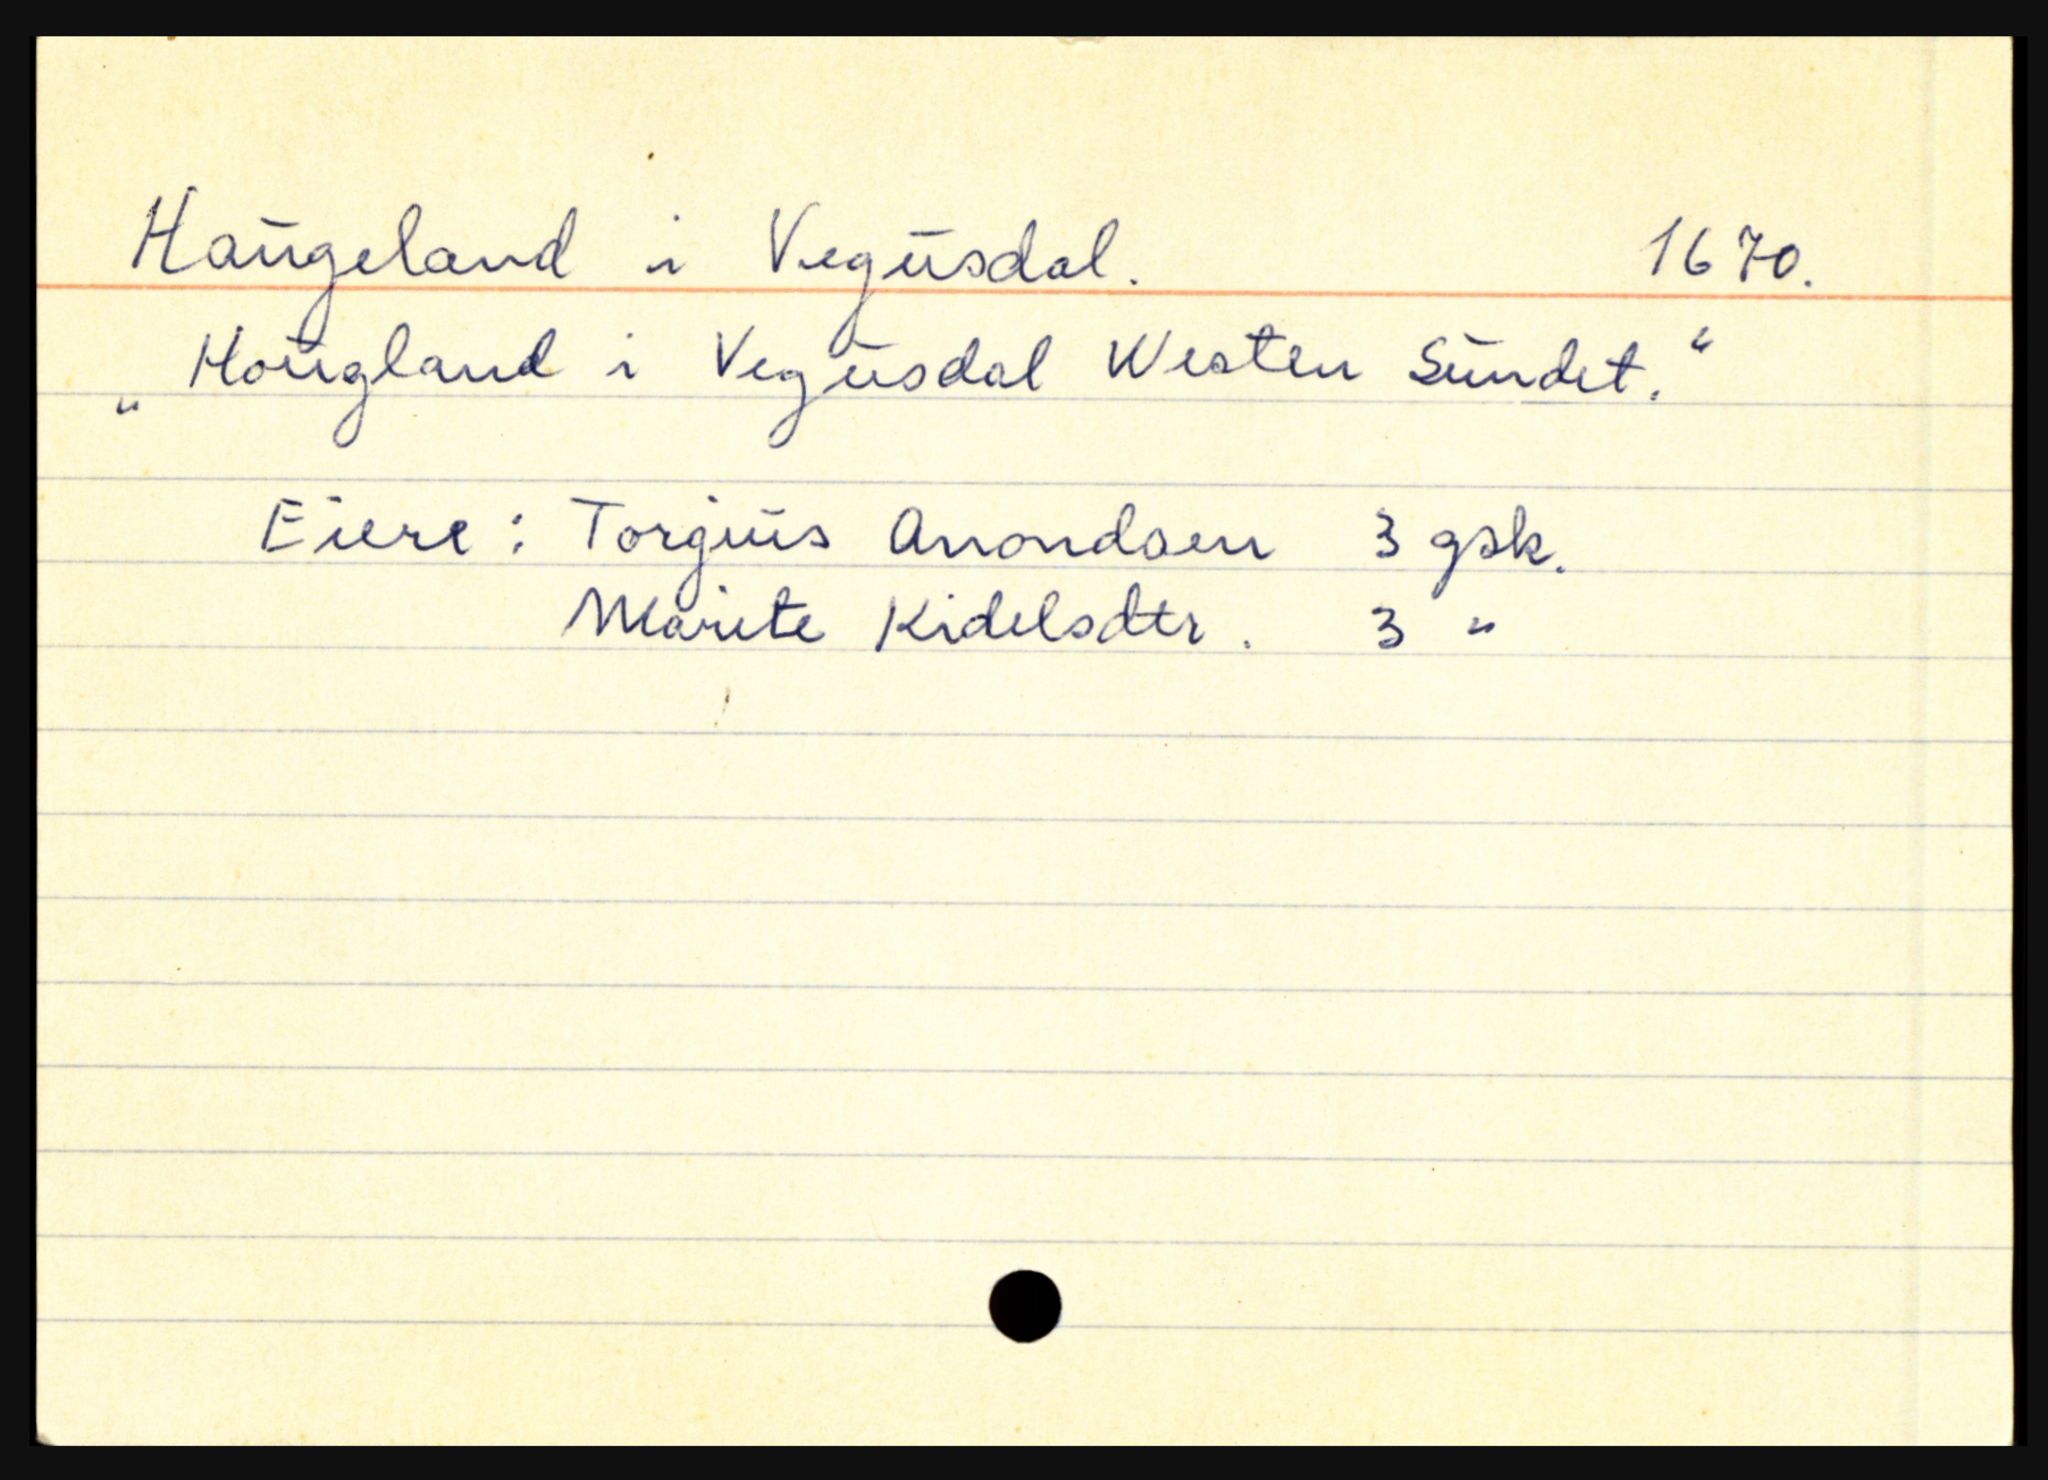 Haugeland i Vegusdal. 1670.
„Hougland i Vegusdal Westen Sundet.“
Eiere: Torgius Anondsen 3 gsk.
Marite Kidelsdtr. 3 "